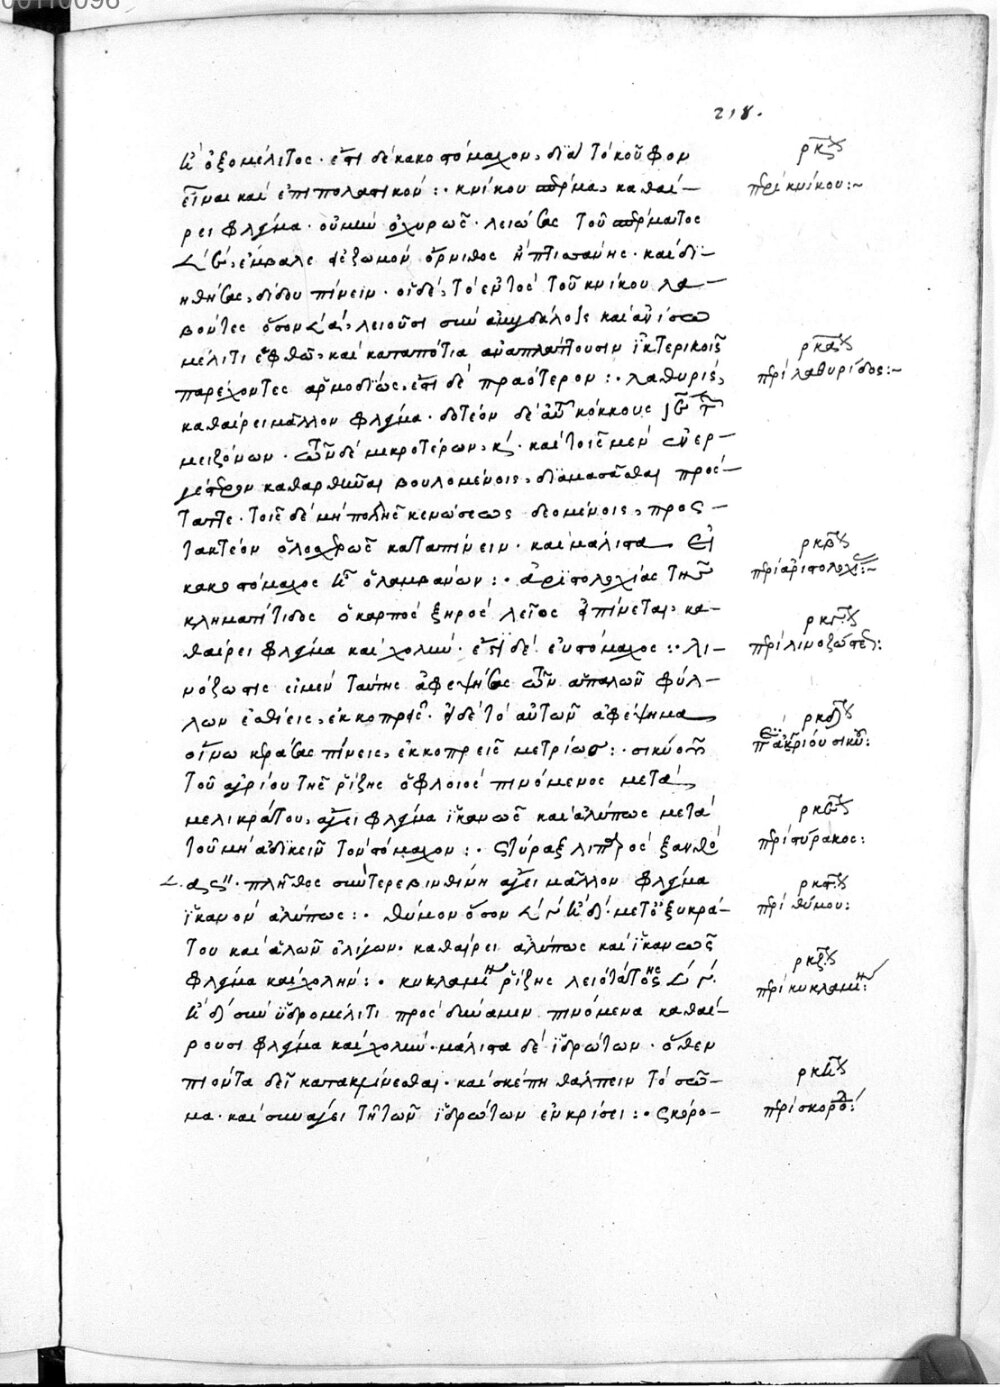 218.
ἢ ὀξομέλιτος· ἔστι δὲ κακοστόμαχον, διὰ τὸ κοῦφον
εἶναι καὶ ἐπιπολαστικόν:· κνίκου σπέρμα, καθαί-
ρει φλέγμα· οὐ μὴν ὀχυρῶς· λειώσας τοῦ σπέρματος
ἔμβαλε ζωμὸν ὄρνιθος ἢ πτισάνης· καὶ δι-
ηθήσας, δίδου πίνειν· οἱ δὲ, τὸ ἐντὸς τοῦ κνίκου λα-
βόντες ὅσον λειοῦσι σὺν ἀμυγδάλοις καὶ ἀνίσω
μέλιτι ἑφθῶ, καὶ καταπότια ἀναπλάττουσιν ἰκτερικοῖς
παρέχοντες ἁρμοδίως, ἔστι δὲ πραότερον:· λαθυρὶς,
καθαίρει μᾶλλον φλέγμα· δοτέον δὲ κόκκους τῶν
μειζόνων· τῶν δὲ μικροτέρων, κ· καὶ τοῖς μὲν
καθαρθῆναι βουλομένοις, διαμασᾶσθαι πρόσ-
ταττε· τοῖς δὲ μὴ πολλῆς κενώσεως δεομένοις, προσ-
τακτέον ὁλοσχερῶς καταπίνειν· καὶ μάλιστα εἰ
κακοστόμαχος ἢ ὁ λαμβάνων:· ἀριστολοχίας τῆς
κληματίτιδος ὁ καρπὸς ξηρὸς λεῖος πίνεται, κα-
θαίρει φλέγμα καὶ χολήν· ἔστι δὲ εὐστόμαχος:· λι-
νόζωστις εἰ μὲν ταύτης ἀφεψήσας τῶν ἁπαλῶν φύλ-
λων ἐσθίεις, ἐκκοπροῖ· εἰ δὲ τὸ αὐτῶν ἀφέψημα
οἴνω κεράσας πίνεις, ἐκκοπρεῖς μετρίως:· σικύου
τοῦ ἀγρίου τῆς ῥίζης ὁ φλοιὸς πινόμενος μετὰ
μελικράτου, ἄγει φλέγμα ἱκανῶς καὶ ἀλύπως μετὰ
τοῦ μὴ ἀδικεῖν τὸν στόμαχον:· στύραξ λιπαρὸς ξανθὸς
πλῆθος σὺν τερεβινθίνη ἄγει μᾶλλον φλέγμα
ἱκανὸν ἀλύπως:· θύμον ὅσον μετ' ὀξυκρά-
του καὶ ἁλῶν ὀλίγων· καθαίρει ἀλύπως καὶ ἱκανῶς
φλέγμα καὶ χολήν:· κυκλαμίνου ῥίζης λειοτάτης
ἢ δ σὺν ὑδρομέλιτι πρὸς δύναμιν πινόμενα καθαί-
ρουσι φλέγμα καὶ χολήν· μάλιστα δὲ ἱδρώτων· ὅθεν
πιόντα δεῖ κατακλίνεσθαι· καὶ σκέπη θάλπειν τὸ σῶ-
μα· καὶ συνάγει τῆ τῶν ἱδρώτων ἐκκρίσει:· σκόρο-
ρκ
περὶ κνίκου:~
ρκα
περὶ λαθυρίδος:~
ρκβ
περὶ ἀριστολοχίας:~
ρκγ
περὶ λινοζώστεως:
ρκδ
περὶ ἀγρίου σικύου:
ρκε
περὶ στύρακος:
ρκς
περὶ θύμου:
ρκζ
περὶ κυκλαμίνου:
ρκη
περὶ σκορόδου: